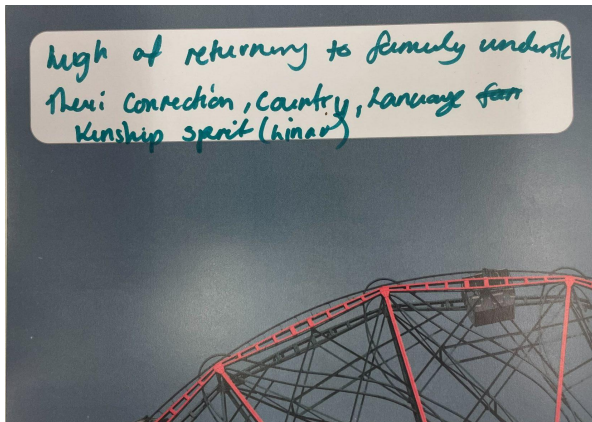 high of returning to family underst
Their Connection, Country, Language
Kinship spirit